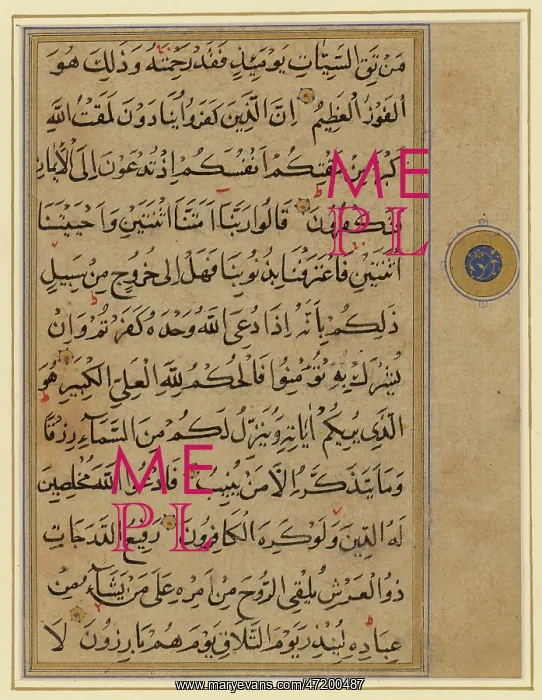 مَنْ تَقِ السَّيِّاٰتِ يَوْمَئِذٍ فَقَدْ رَحِمْتَهُ وَذٰلِكَ هُوَ
الْفَوْزُ الْعَظِيمُ اِنَّ الَّذِينَ كَفَرُوا يُنَادَوْنَ لَمَقْتُ اللّٰهِ
اَكْبَرُ مِنْ مَقْتِكُمْ اَنْفُسَكُمْ اِذْ تُدْعَوْنَ اِلَى الْاِيمَانِ
ME
فَتَكْفُرُونَ قَالُوا رَبَّنَا اَمَتَّنَا اثْنَتَيْنِ وَاَحْيَيْتَنَا
PL
اثْنَتَيْنِ فَاعْتَرَفْنَا بِذُنُوبِنَا فَهَلْ اِلٰى خُرُوجٍ مِنْ سَبِيلٍ
ذٰلِكُمْ بِاَنَّهُ اِذَا دُعِىَ اللّٰهُ وَحْدَهُ كَفَرْتُمْ وَاِنْ
يُشْرَكْ بِهِ تُؤْمِنُوا فَالْحُكْمُ لِلّٰهِ الْعَلِىِّ الْكَبِيرِ هُوَ
الَّذِى يُرِيكُمْ اٰيَاتِهِ وَيُنَزِّلُ لَكُمْ مِنَ السَّمَآءِ رِزْقًا
ME
وَمَا يَتَذَكَّرُ اِلَّا مَنْ يُنِيبُ فَادْعُوا اللّٰهَ مُخْلِصِينَ
PL
لَهُ الدِّينَ وَلَوْ كَرِهَ الْكَافِرُونَ رَفِيعُ الدَّرَجَاتِ
ذُو الْعَرْشِ يُلْقِى الرُّوحَ مِنْ اَمْرِهِ عَلٰى مَنْ يَشَآءُ مِنْ
عِبَادِهِ لِيُنْذِرَ يَوْمَ التَّلَاقِ يَوْمَ هُمْ بَارِزُونَ لَا
www.maryevans.com/47200487